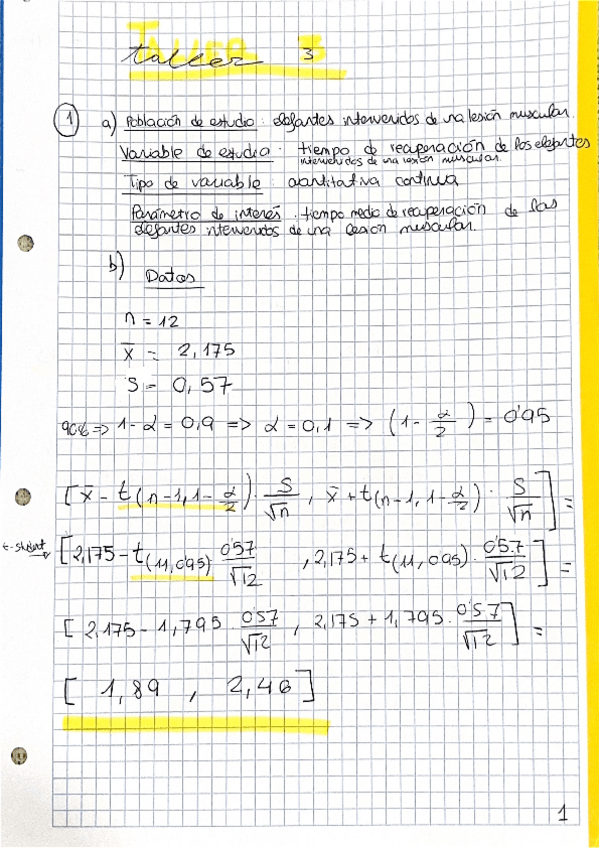 TALLER 3
taller 3
1 a) Población de estudio: elefantes intervenidos de una lesión muscular.
Variable de estudio: tiempo de recuperación de los elefantes
intervenidos de una lesión muscular.
Tipo de variable: cuantitativa continua
Parámetro de interés: tiempo medio de recuperación de los
elefantes intervenidos de una lesión muscular.
b) Datos
n = 12
x̄ = 2,175
S = 0,57
90% => 1-α = 0,9 => α = 0,1 => (1 - α/2) = 0'95
[x̄ - t(n-1, 1-α/2) · S/√n , x̄ + t(n-1, 1-α/2) · S/√n] =
t-student [2,175 - t(11,0'95) · 0'57/√12 , 2,175 + t(11,0'95) · 0'57/√12] =
[2,175 - 1,795 · 0'57/√12 , 2,175 + 1,795 · 0'57/√12] =
[1,89 , 2,46]
1